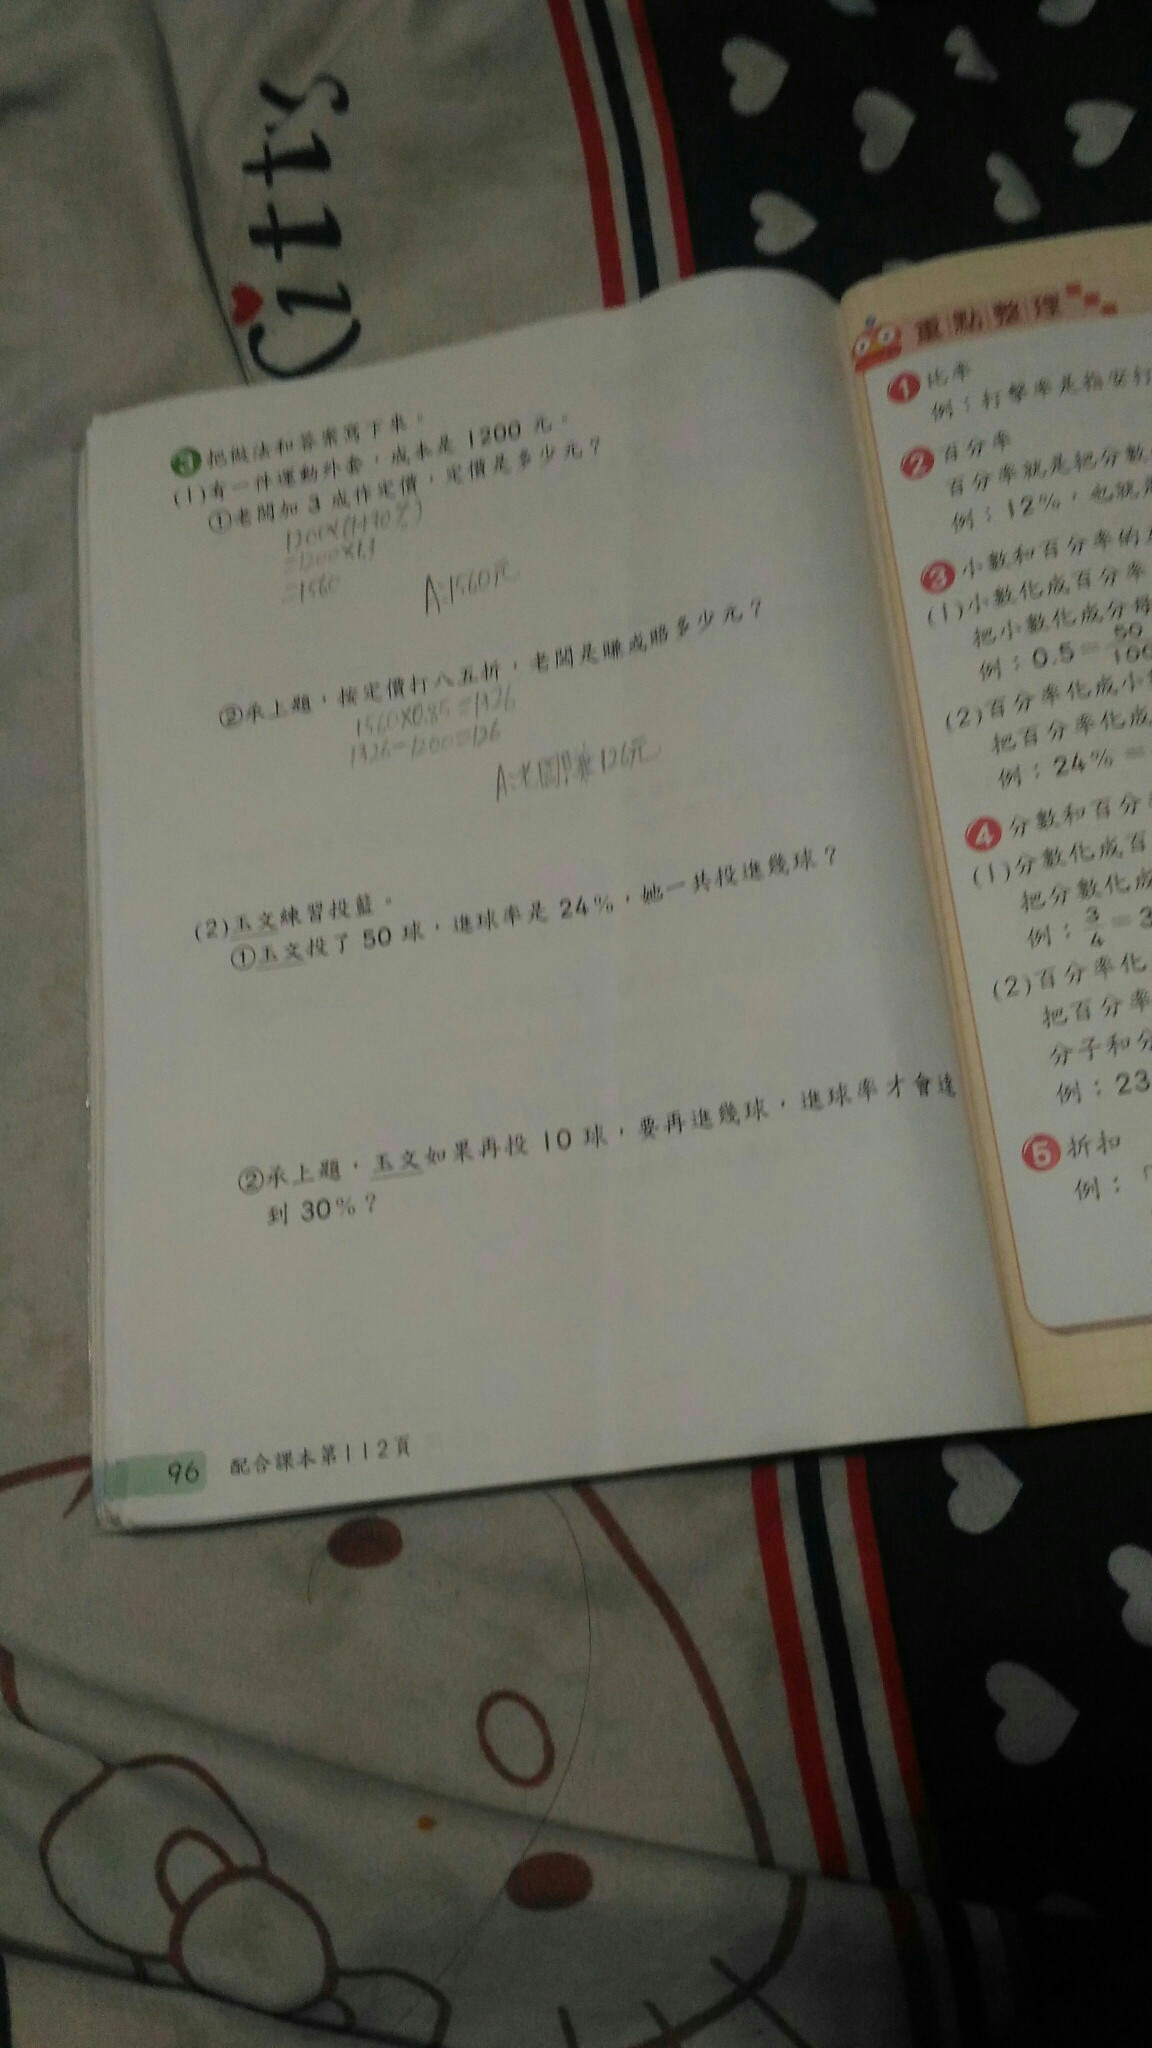 itty
3 把做法和答案寫下來。
(1)有一件運動外套，成本是 1200 元。
①老闆加 3 成作定價，定價是多少元？
=1560
A:1560元
②承上題，按定價打八五折，老闆是賺或賠多少元？
1560×0.85=1326
1326-1200=126
A:老闆 126元
(2)玉文練習投籃。
①玉文投了 50 球，進球率是 24%，她一共投進幾球？
②承上題，玉文如果再投 10 球，要再進幾球，進球率才會達
到 30%？
96 配合課本第112頁
重點整理
1 比率
例：打擊率是指安打
2 百分率
百分率就是把分數
例：12%，也就是
3 小數和百分率的
(1)小數化成百分率
把小數化成分母
例：0.5=50/100
(2)百分率化成小
把百分率化成
例：24%=
4 分數和百分
(1)分數化成百
把分數化成
例：3/4=3
(2)百分率化
把百分率
分子和分
例：23
5 折扣
例：「